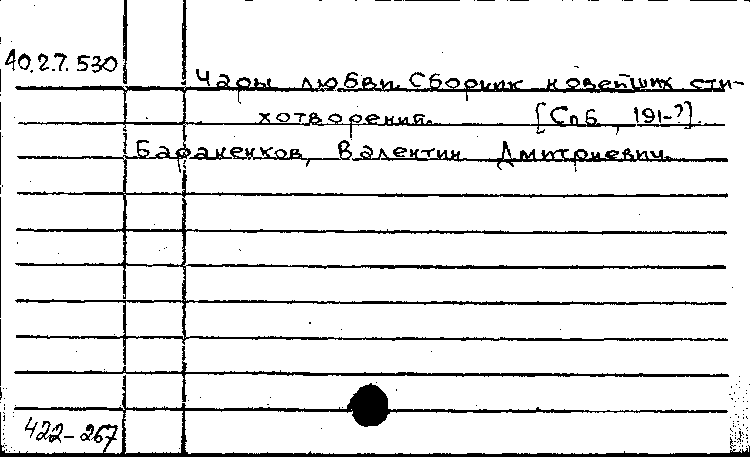 40.2.7.530
Чары любви. Сборник новейших сти-
хотворений. [Спб, 191-?].
Бараненков, Валентин Дмитриевич.
422-267